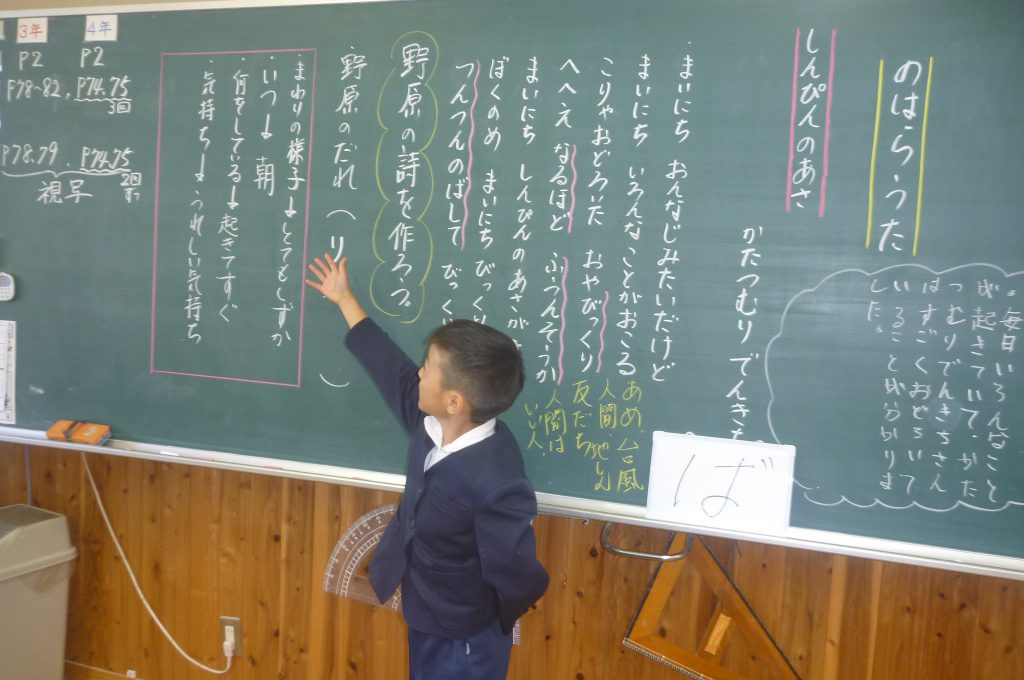 のはらうた
しんぴんのあさ
かたつむりでんきち
。毎日いろんなこと
が起きていて、かた
つむりでんきちさん
はすごくおどろいて
いることが分かりま
した。
・まいにち おんなじみたいだけど
まいにち いろんなことがおこる
こりゃおどろいた おやびっくり
へへえ なるほど ふうんそうか
まいにち しんぴんのあさが
ぼくのめ まいにち びっくり
つんつんのばして びっくり
あめ、台風
人間、地しん
友だち
人間は
いい人、
野原の詩を作ろう。
・野原のだれ（り
）
・まわりの様子→とてもしずか
・いつ→朝
・何をしている→起きてすぐ
・気持ち→うれしい気持ち
4年
P2
P74.75
3回
P74.75
2回
ずつ
3年
P2
P78~82、
P78.79、
視写
ば